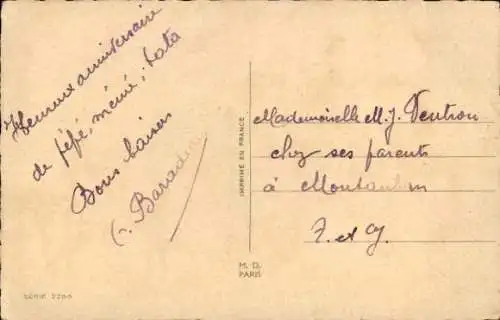 Heureux anniversaire
de pépé, mémé, tata
Bons baisers
Baradin
Mademoiselle M. J.
chez ses parents
à Montauban
T. et G.
IMPRIMÉ EN FRANCE
M. D.
PARIS
SÉRIE